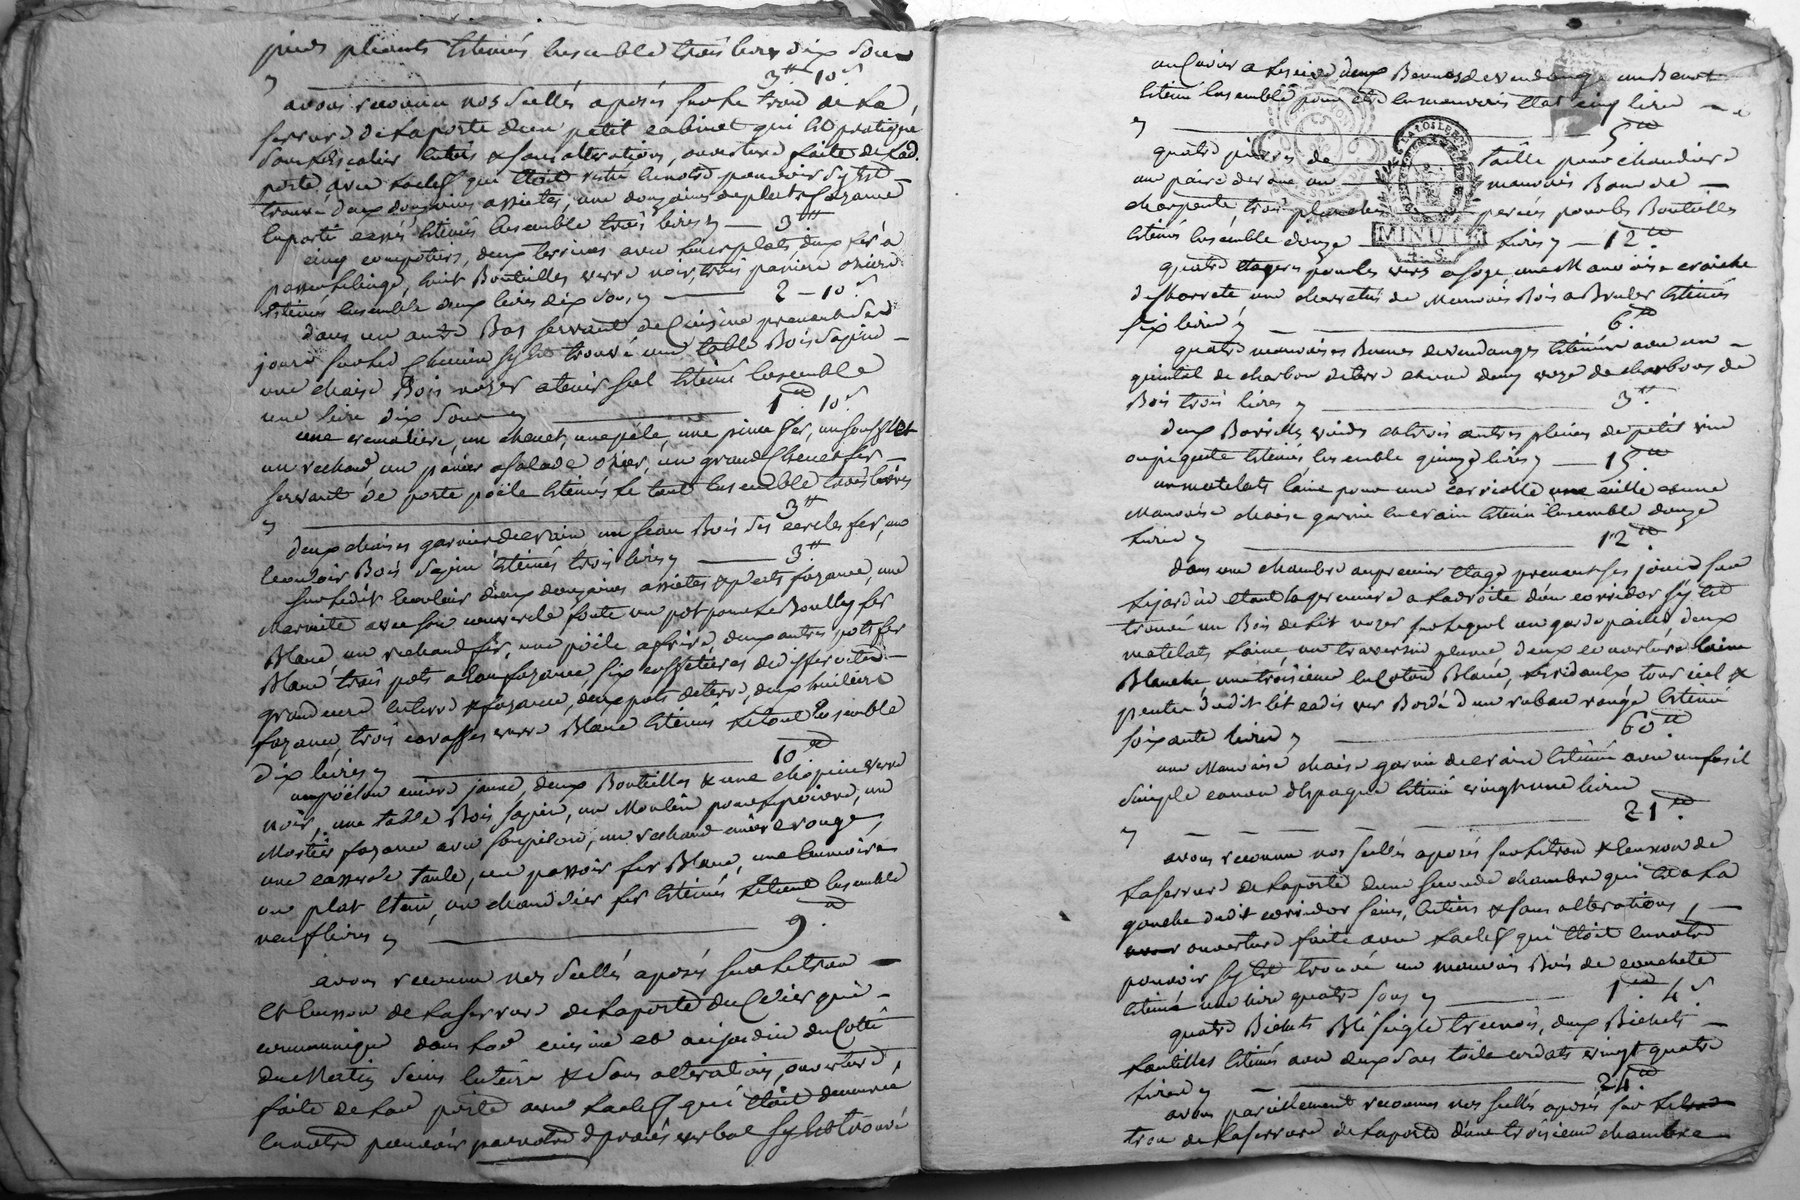 pieds pliants Estimés Ensemble trois livres dix sous
3tt 10s
avons reconnu nos Scellés aposés sur le trou de la
serrure de la porte d'un petit cabinet qui Est pratiqué
Entiers & sans alterations, ouverture faite de lad.
porte avec la clef qui Etoit restée En notre pouvoir s'y Est
trouvé deux douzaines assietes, une douzaine de plats fayance
Estimés Ensemble trois livres — 3tt
cinq compotiers, deux terrines avec leurs plats, deux fer a
passer le linge, huit Bouteilles verre noir, trois paniers ozier
Estimés Ensemble deux livres dix sous — 2 – 10s
dans un autre Bas servant de Cuisine prenant ses
jours sur le Chemin s'y Est trouvé une table Bois sapin
une chaise Bois noyer a tenir sel Estimés Ensemble
une livre dix sous — 1tt 10s
une cremaliere, un chenet, une pèle, une pince fer, un soufflet
un rechaud un panier a salade ozier, un grand Chenet fer
servant de porte poële Estimés le tout Ensemble trois livres
3tt
deux chaises garnies de crain un seau Bois ses cercles fer, un
Bois sapin Estimés trois livres — 3tt
deux douzaines assietes & plats fayance, une
marmite avec son couvercle fonte un pot pour le Bouilly fer
Blanc, un rechaud fer, une poële a frire, deux autres pots fer
Blanc trois pots a l'eau fayance, six caffetieres de differentes
grandeurs En terre & fayance, deux pots de terre, deux huiliers
fayance, trois caraffes verre Blanc Estimés le tout Ensemble
dix livres — 10tt
un poëlon cuivre jaune, deux Bouteilles & une chopine verre
noir, une table Bois sapin, un Moulin pour le poivre, un
Mortier fayance avec son pilon, un rechaud cuivre rouge,
une casserole taule, un passoir fer Blanc, une
un plat Etain, un chandelier fer Estimés le tout Ensemble
neuf livres — 9tt
avons reconnu nos Scellés aposés sur le trou
et de la serrure de la porte du Celier qui
communique dans lad. cuisine et au jardin du Cotté
du Matin sains Entiers & sans alterations, ouverture
faite de lad. porte avec la clef qui Etoit demeurée
En notre pouvoir par notre d. procés verbal s'y Est trouvé
un Cuvier a lessive deux Bennes de vendange un
Estimé Ensemble pour être En mauvais Etat cinq livres
5tt
quatre pierres de taille pour chaudiere
un paire de roue un mauvais Bois de
charpente, trois planches percées pour les Bouteilles
Estimés Ensemble douze livres — 12tt
MINUTE
4. S.
quatre Etageres pour les vers a soye une Mauvaise craiche
de charrete une charretée de Mauvais Bois a Bruler Estimés
six livres — 6tt
quatre mauvaises Bennes de vendanges Estimées avec un
quintal de charbon de terre de charbons de
Bois trois livres — 3tt
deux Barrils vuides et trois autres pleins de petit vin
ou piquete Estimés Ensemble quinze livres — 15tt
un matelats laine pour une carriolle une
Mauvaise chaise garnie En crain Estimé Ensemble douze
livres — 12tt
dans une chambre au premier Etage prenant ses jours sur
le jardin Etant la premiere a la droite d'un corridor s'y Est
trouvé un Bois de lit noyer sur lequel un garde paille deux
matelats laine un traversin plume deux couvertures laine
Blanche une troisieme En Coton Blanc, les rideaux tour ciel &
pente dudit lit cadis ver Bordé d'un ruban rougé Estimé
soixante livres — 60tt
une Mauvaise chaise garnie de crain Estimée avec un fusil
simple canon d'Espagne Estimé vingt une livre
21tt
avons reconnu nos scellés aposés sur le trou & de
la serrure de la porte d'une seconde chambre qui Est a la
gauche dudit corridor sains, Entiers & sans alterations,
ouverture faite avec la clef qui Etoit En notre
pouvoir s'y Est trouvé un mauvais Bois de couchete
Estimé une livre quatre sous — 1tt 4s
quatre Bichets Blé seigle, deux Bichets
Lantilles Estimés avec deux sacs toile vingt quatre
livres — 24tt
avons pareillement reconnu nos scellés aposés sur le
trou de la serrure de la porte d'une troisieme chambre